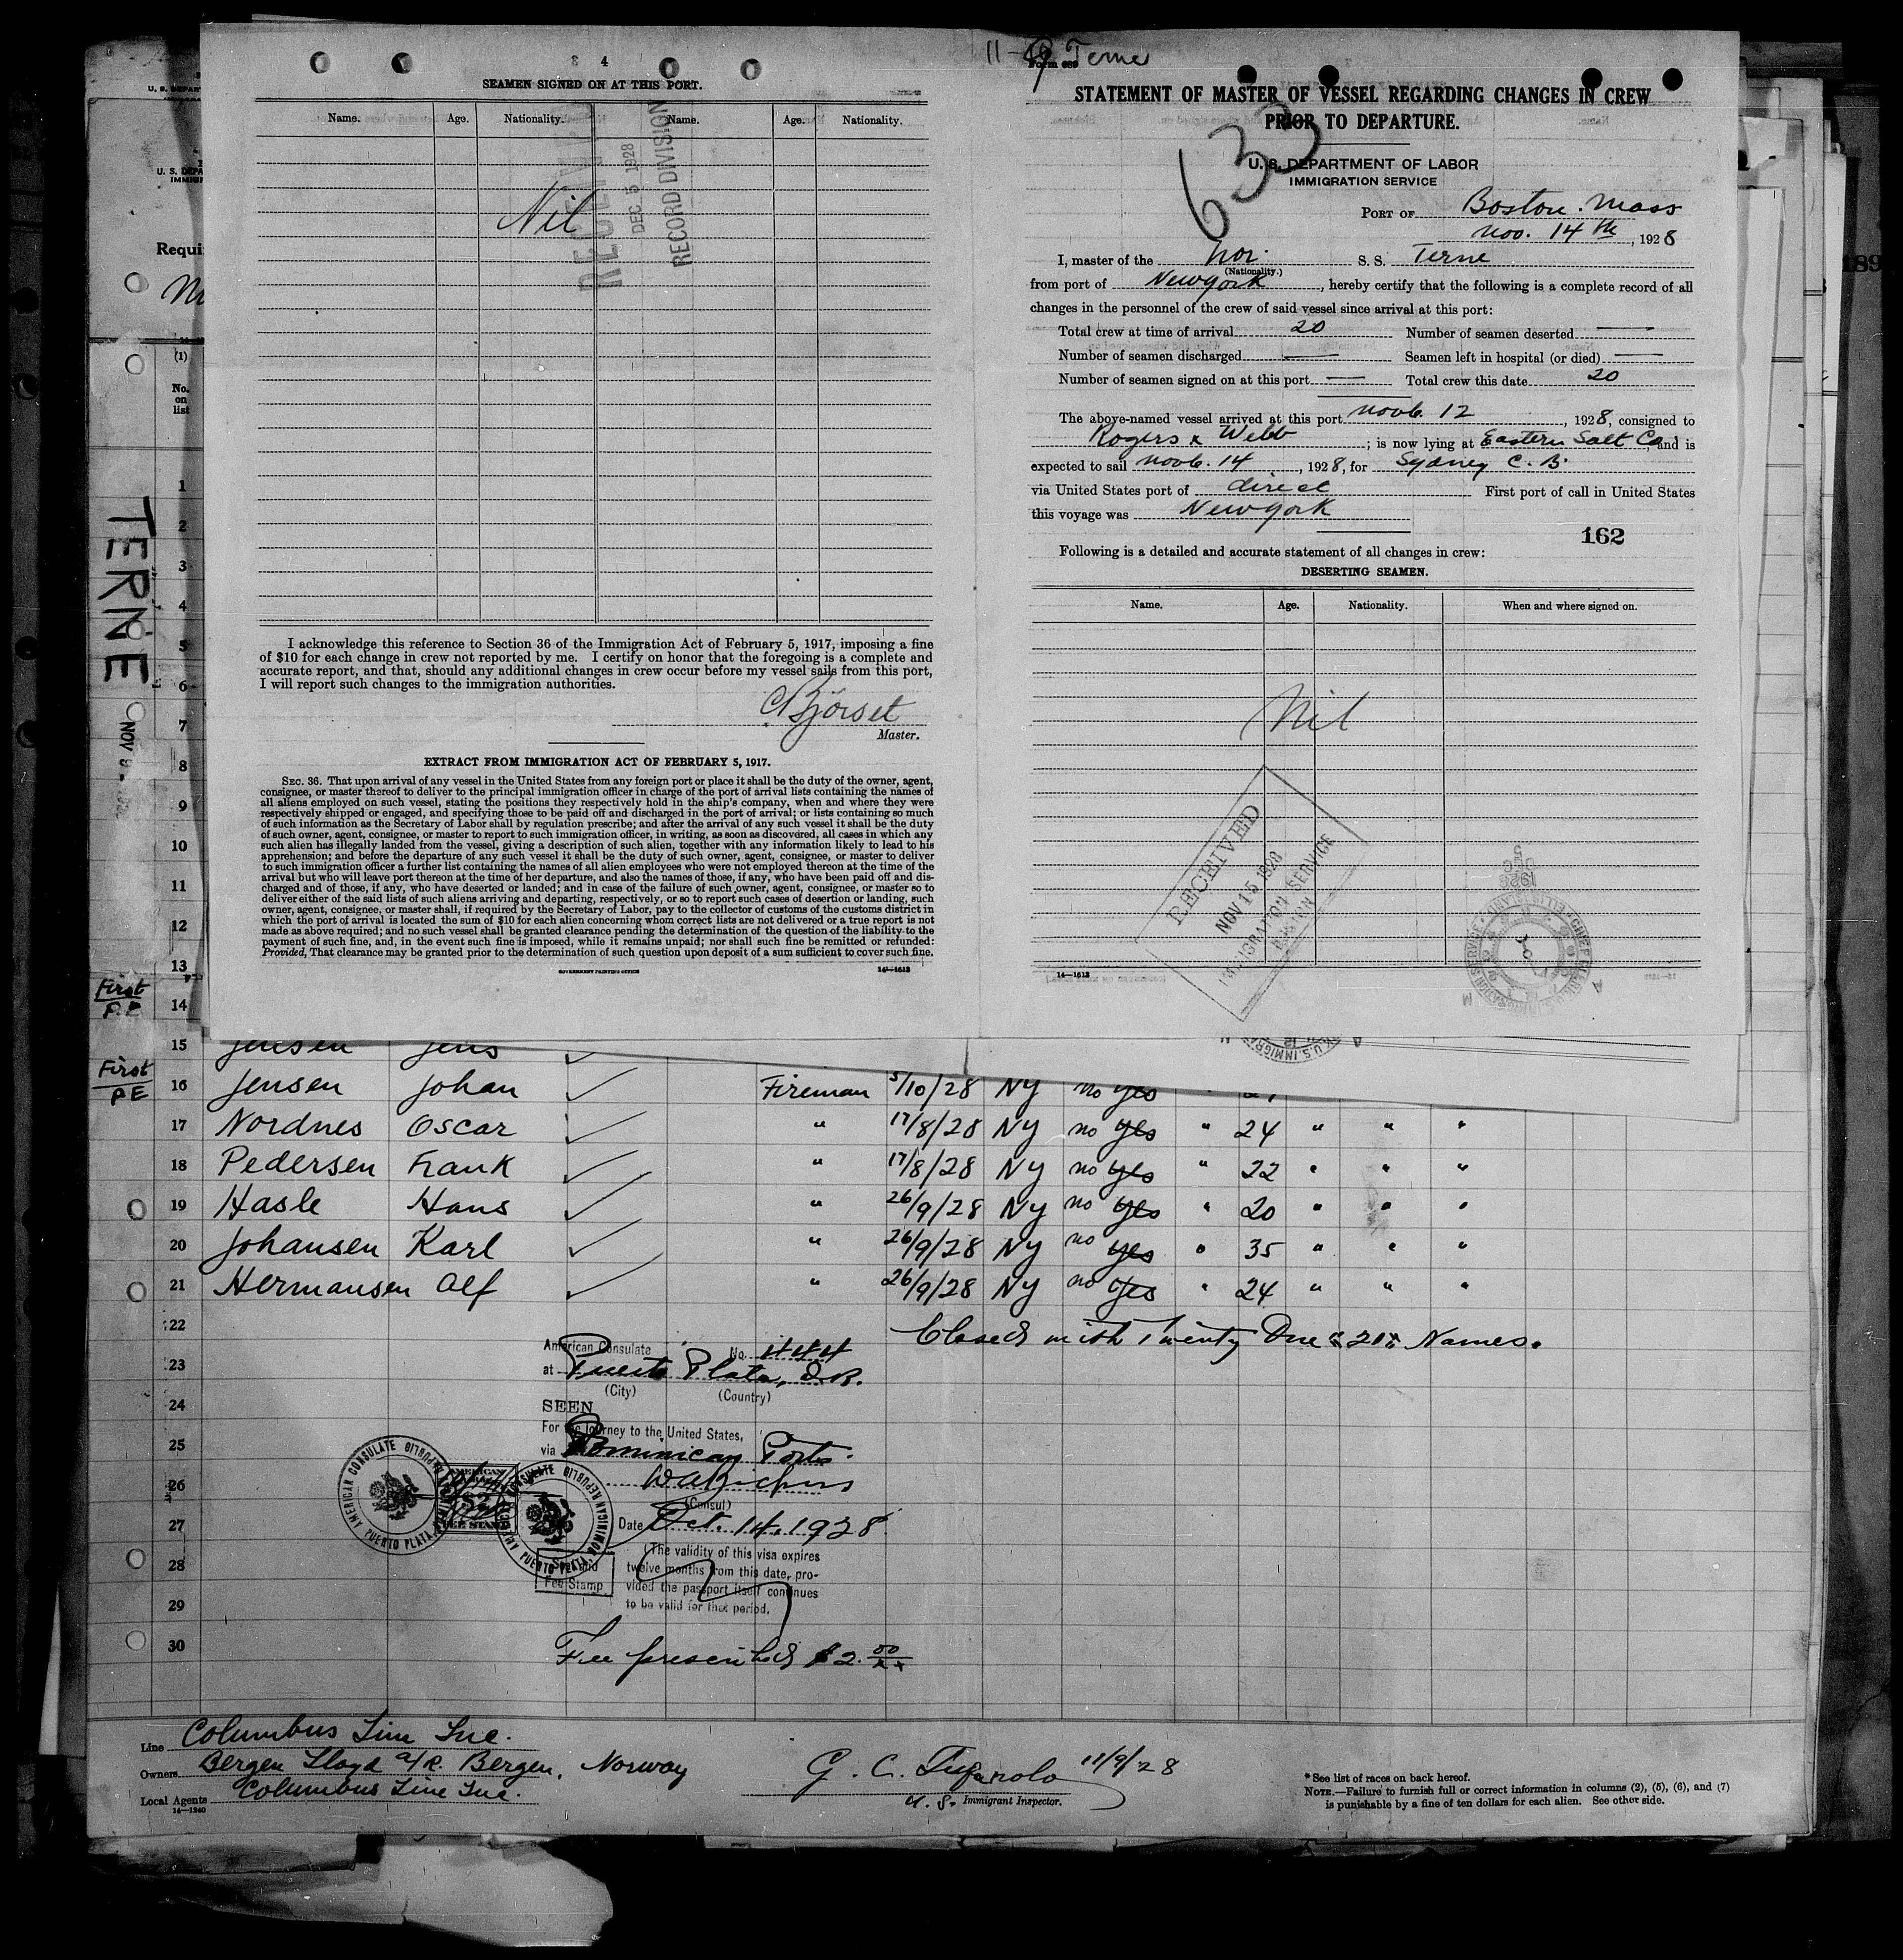 4
SEAMEN SIGNED ON AT THIS PORT.
Name. Age. Nationality. Name. Age. Nationality.
Nil
RECEIVED
DEC. 5 1928
RECORD DIVISION
I acknowledge this reference to Section 36 of the Immigration Act of February 5, 1917, imposing a fine
of $10 for each change in crew not reported by me. I certify on honor that the foregoing is a complete and
accurate report, and that, should any additional changes in crew occur before my vessel sails from this port,
I will report such changes to the immigration authorities.
C Bjorset
Master.
EXTRACT FROM IMMIGRATION ACT OF FEBRUARY 5, 1917.
SEC. 36. That upon arrival of any vessel in the United States from any foreign port or place it shall be the duty of the owner, agent,
consignee, or master thereof to deliver to the principal immigration officer in charge of the port of arrival lists containing the names of
all aliens employed on such vessel, stating the positions they respectively hold in the ship's company, when and where they were
respectively shipped or engaged, and specifying those to be paid off and discharged in the port of arrival; or lists containing so much
of such information as the Secretary of Labor shall by regulation prescribe; and after the arrival of any such vessel it shall be the duty
of such owner, agent, consignee, or master to report to such immigration officer, in writing, as soon as discovered, all cases in which any
such alien has illegally landed from the vessel, giving a description of such alien, together with any information likely to lead to his
apprehension; and before the departure of any such vessel it shall be the duty of such owner, agent, consignee, or master to deliver
to such immigration officer a further list containing the names of all alien employees who were not employed thereon at the time of the
arrival but who will leave port thereon at the time of her departure, and also the names of those, if any, who have been paid off and dis-
charged and of those, if any, who have deserted or landed; and in case of the failure of such owner, agent, consignee, or master so to
deliver either of the said lists of such aliens arriving and departing, respectively, or so to report such cases of desertion or landing, such
owner, agent, consignee, or master shall, if required by the Secretary of Labor, pay to the collector of customs of the customs district in
which the port of arrival is located the sum of $10 for each alien concerning whom correct lists are not delivered or a true report is not
made as above required; and no such vessel shall be granted clearance pending the determination of the question of the liability to the
payment of such fine, and, in the event such fine is imposed, while it remains unpaid; nor shall such fine be remitted or refunded:
Provided, That clearance may be granted prior to the determination of such question upon deposit of a sum sufficient to cover such fine.
GOVERNMENT PRINTING OFFICE 14—1613
Terne
Form 689
STATEMENT OF MASTER OF VESSEL REGARDING CHANGES IN CREW
PRIOR TO DEPARTURE.
633
U. S. DEPARTMENT OF LABOR
IMMIGRATION SERVICE
PORT OF Boston. Mass
Nov. 14th, 1928
I, master of the Nor. S. S. Terne
(Nationality.)
from port of Newyork, hereby certify that the following is a complete record of all
changes in the personnel of the crew of said vessel since arrival at this port:
Total crew at time of arrival 20 Number of seamen deserted —
Number of seamen discharged — Seamen left in hospital (or died) —
Number of seamen signed on at this port — Total crew this date 20
The above-named vessel arrived at this port Novb. 12, 1928, consigned to
Rogers & Webb; is now lying at Eastern Salt Co, and is
expected to sail Novb. 14, 1928, for Sydney C. B.
via United States port of direct First port of call in United States
this voyage was Newyork
162
Following is a detailed and accurate statement of all changes in crew:
DESERTING SEAMEN.
Name. Age. Nationality. When and where signed on.
Nil
RECEIVED
NOV 15 1928
IMMIGRATION SERVICE
BOSTON
14—1613
189
U. S. DEPA
IMMIGR
Requi
(1)
No.
on
list
TERNE
NOV 9
1
2
3
4
5
6
7
8
9
10
11
12
13
First
PE
14
15 Jensen Jens
First
PE
16 Jensen Johan Fireman 5/10/28 NY no yes
17 Nordnes Oscar " 17/8/28 NY no yes " 24 " " "
18 Pedersen Frank " 17/8/28 NY no yes " 22 " " "
19 Hasle Hans " 26/9/28 NY no yes " 20 " " "
20 Johansen Karl " 26/9/28 NY no yes " 35 " " "
21 Hermansen Alf " 26/9/28 NY no yes " 24 " " "
22 Closed with Twenty One "21" Names.
American Consulate No. 444
23 at Puerto Plata, D.R.
(City) (Country)
24 SEEN
For the journey to the United States,
25 via Dominican Ports.
26
(Consul)
27 Date Oct. 14, 1928
(The validity of this visa expires
28 twelve months from this date, pro-
vided the passport itself continues
29 to be valid for that period.
AMERICAN CONSULATE PUERTO PLATA DOMINICAN REPUBLIC
AMERICAN CONSULATE PUERTO PLATA DOMINICAN REPUBLIC
Fee Stamp
30 Fee prescribed $2.00
Line Columbus Line Inc.
Owners Bergen Lloyd a/R. Bergen, Norway
Local Agents Columbus Line Inc.
14—1240
G. C. Tufarolo 11/9/28
U. S. Immigrant Inspector.
* See list of races on back hereof.
NOTE.—Failure to furnish full or correct information in columns (2), (5), (6), and (7)
is punishable by a fine of ten dollars for each alien. See other side.